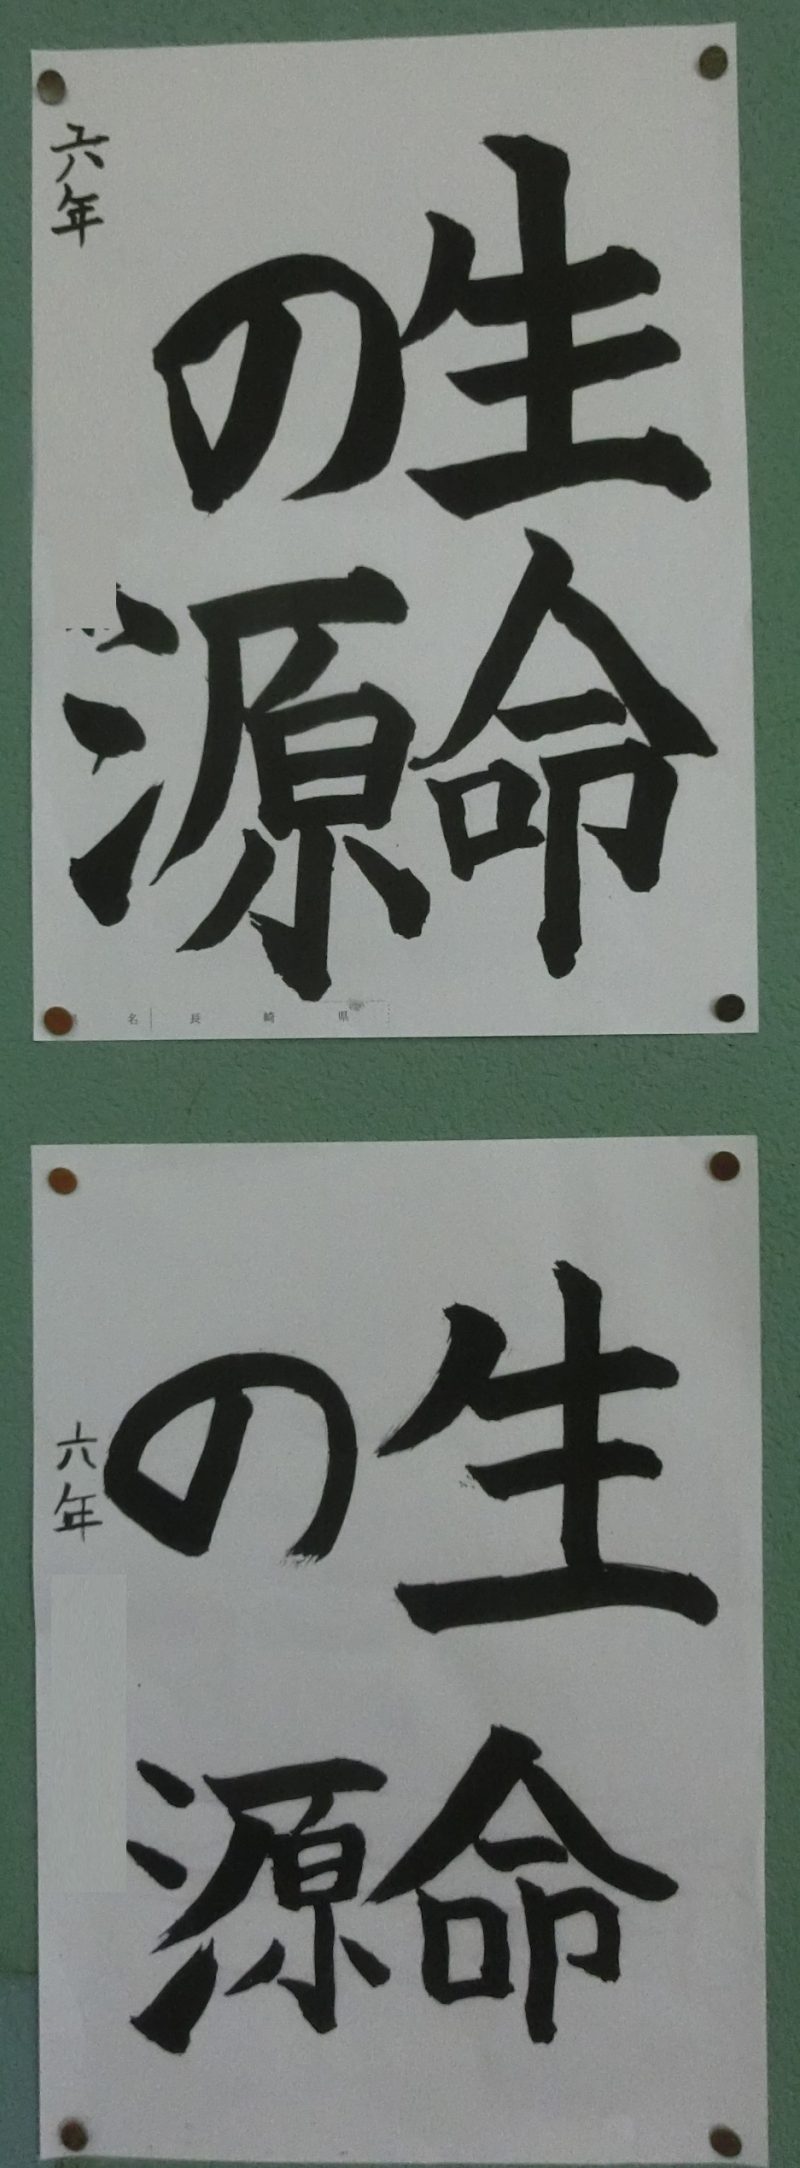 生命
の源
六年
名 長崎県
生命
の源
六年